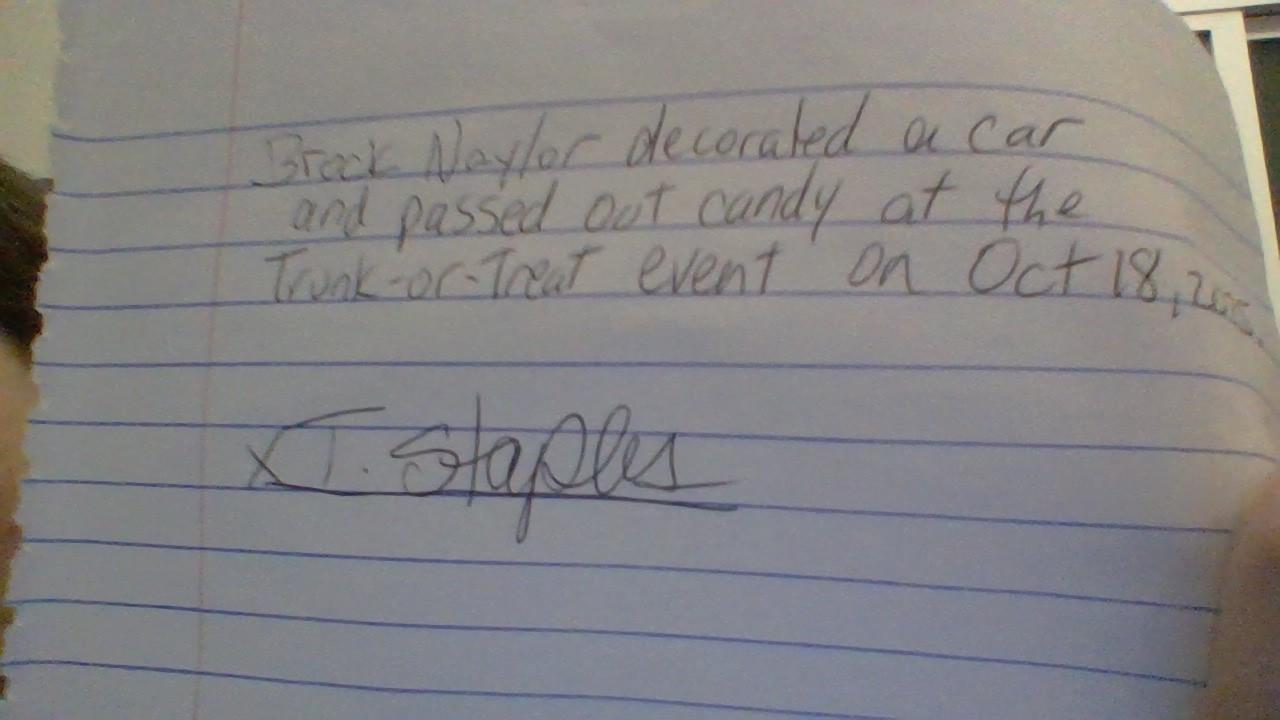 Brock Naylor decorated a car
and passed out candy at the
Trunk-or-Treat event on Oct 18,
x T. Staples